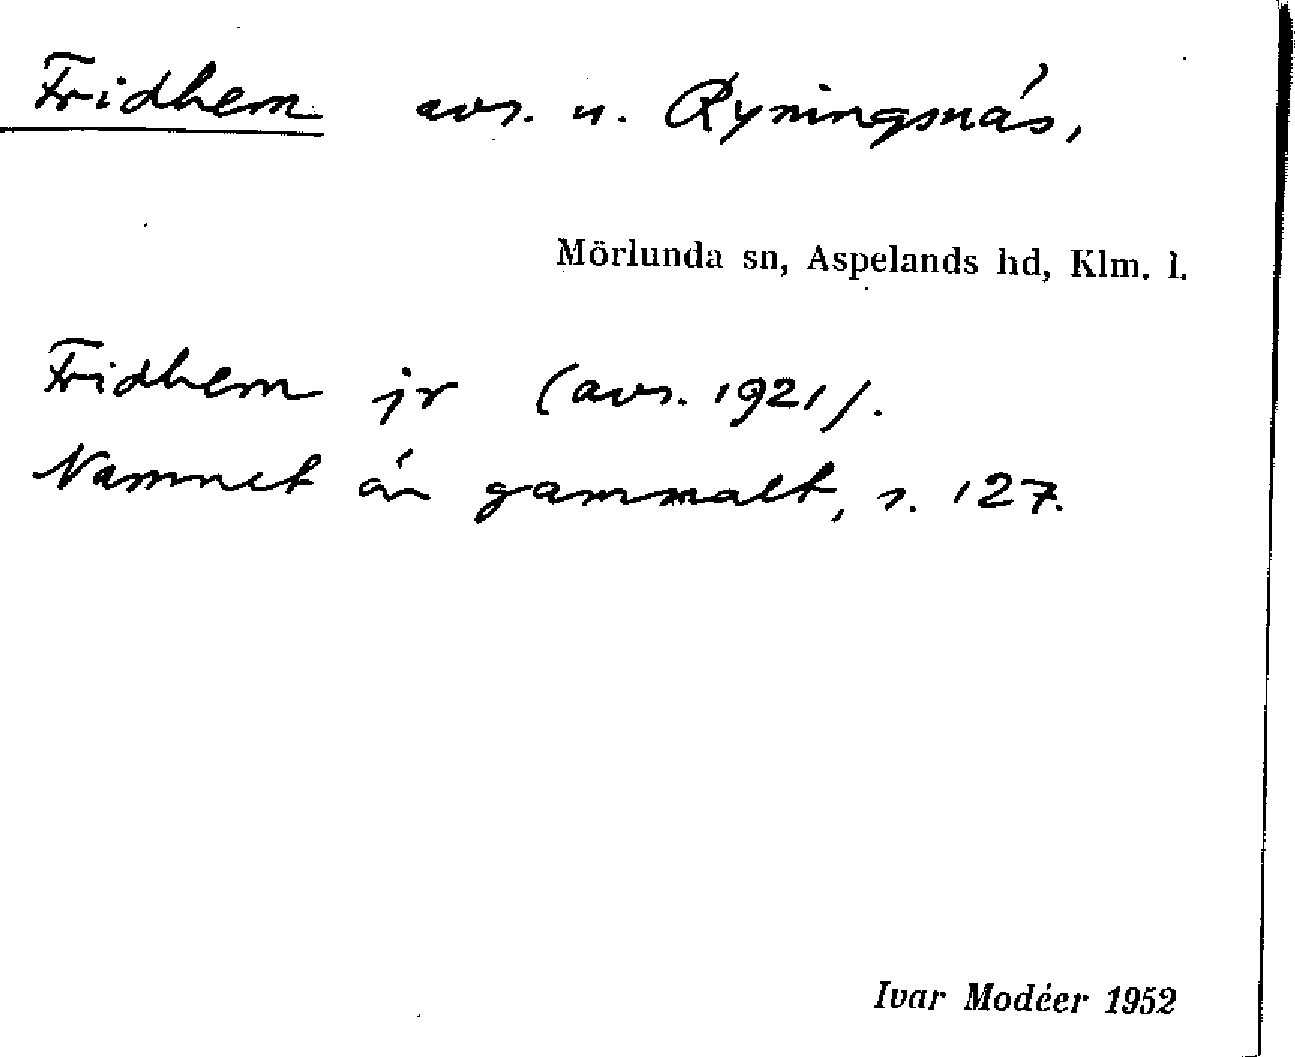 Fridhem avs. u. Ryningsnäs,
Mörlunda sn, Aspelands hd, Klm. l.
Fridhem jr (avs. 1921).
Namnet är gammalt, s. 127.
Ivar Modéer 1952